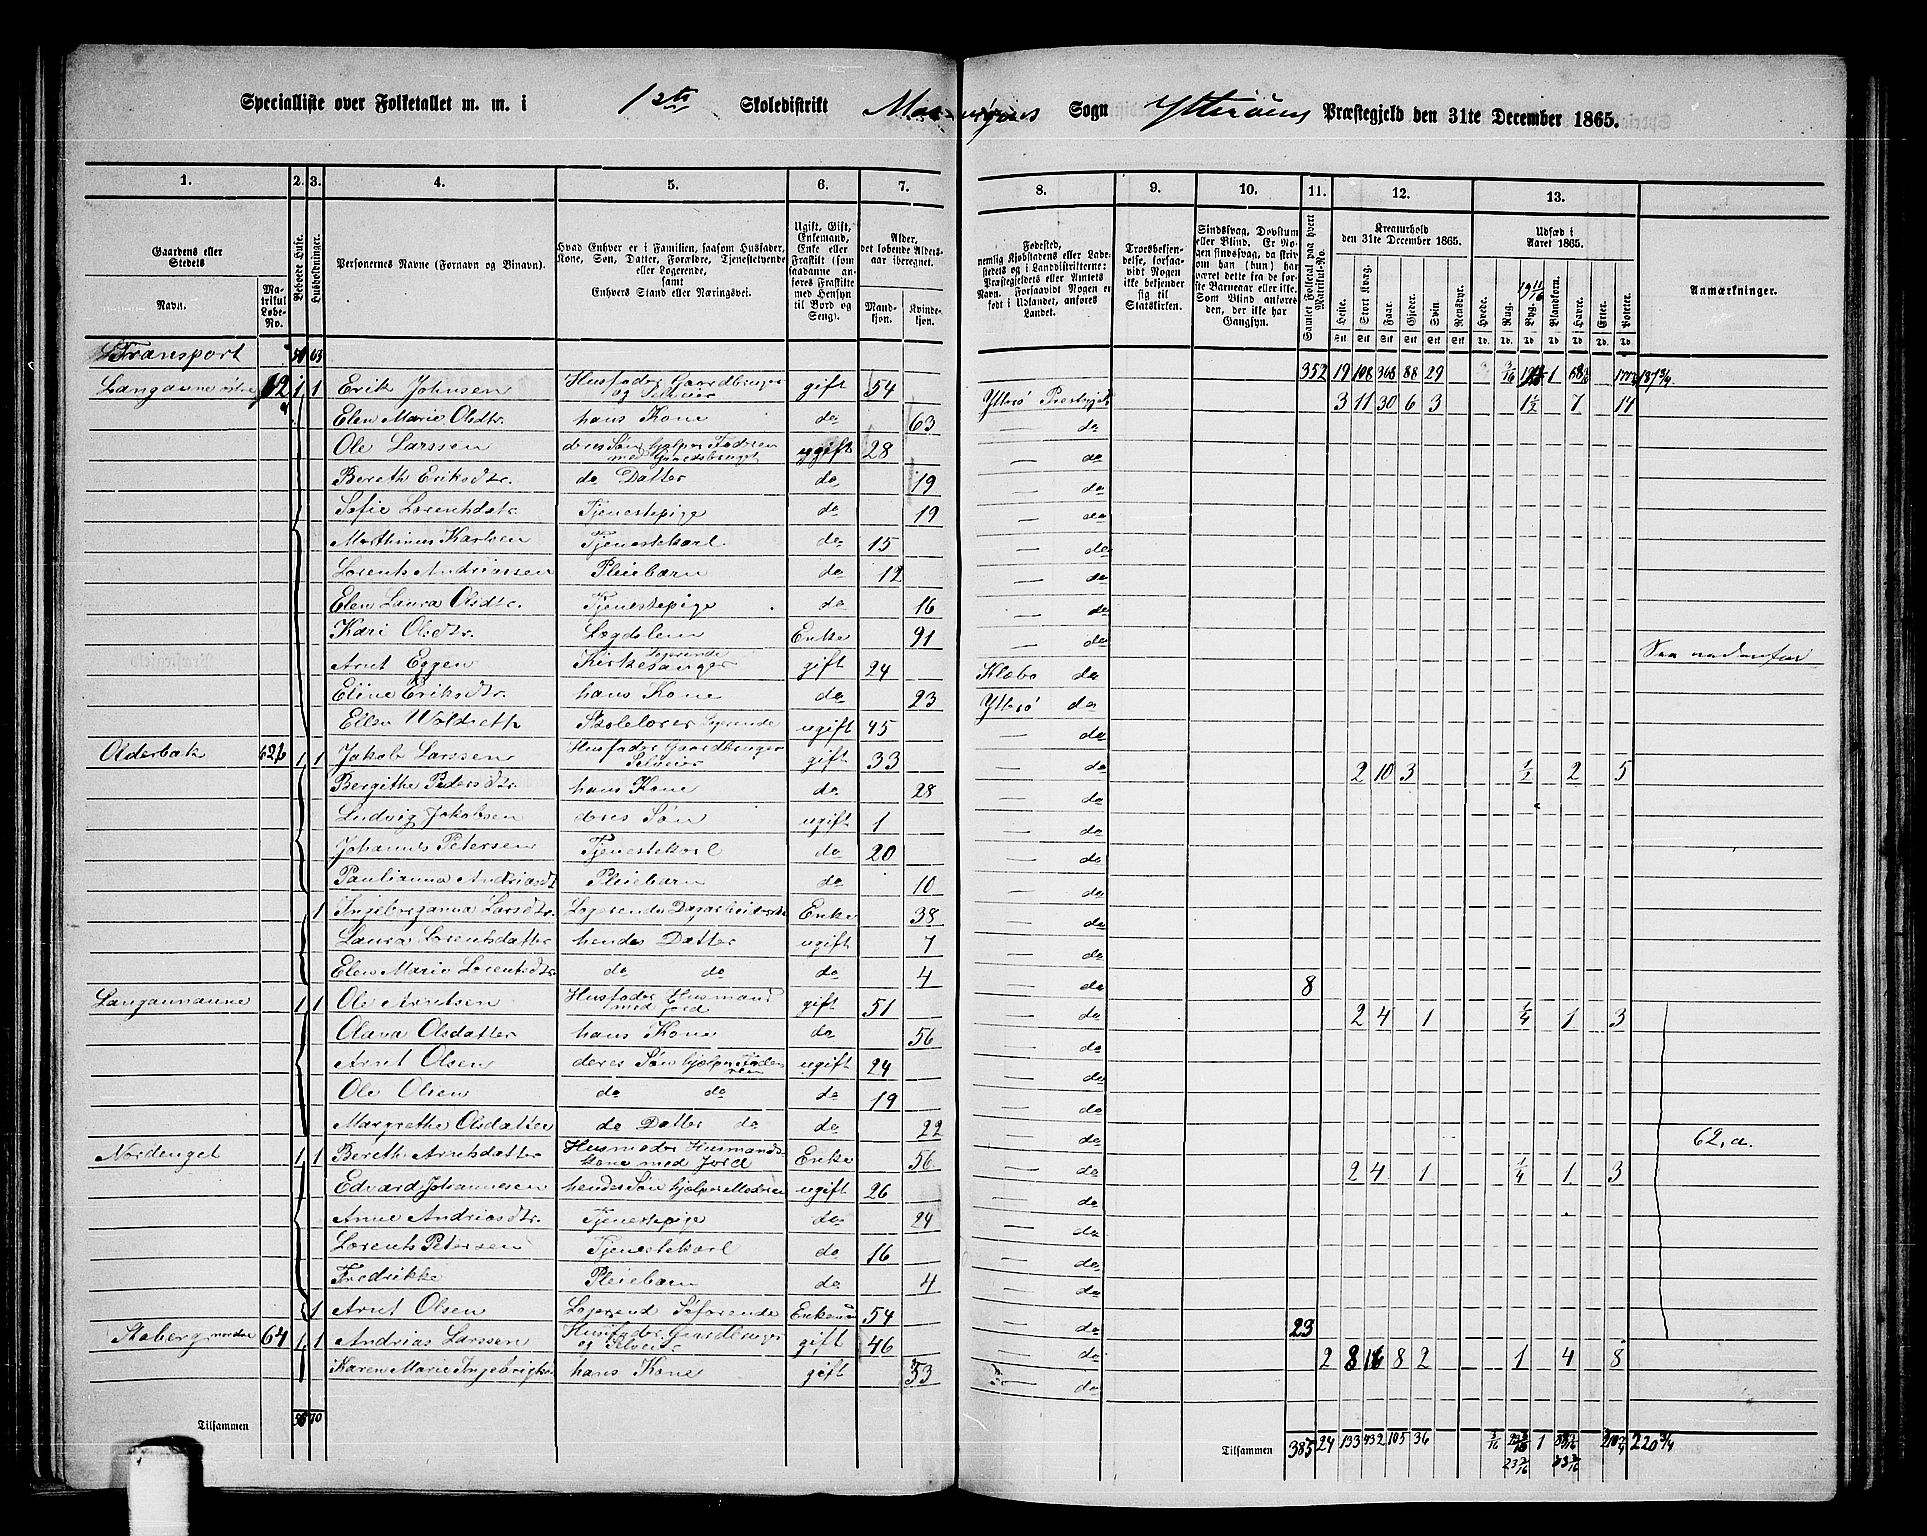 Specialliste over Folketallet m. m. i 1ste Skoledistrikt
Sogn Ytterøens Præstegjeld den 31te December 1865.
1. 2. 3. 4. 5. 6. 7.
8. 9. 10. 11. 12. 13.
Gaardens eller Stedets
Navn.
Matrikul Løbe-No.
Beboede Huse.
Husholdninger.
Personernes Navne (Fornavn og Binavn).
Hvad Enhver er i Familien, saasom Husfader, Kone, Søn, Datter, Forældre, Tjenestetyende eller Logerende,
samt
Enhvers Stand eller Næringsvei.
Ugift, Gift, Enkemand, Enke eller Fraskilt (som saadanne anføres Fraskilte med Hensyn til Bord og Seng).
Alder, det løbende Aldersaar iberegnet.
Mandkjøn. Kvindekjøn.
Fødested,
nemlig Kjøbstadens eller Ladestedets og i Landdistrikterne: Præstegjeldets eller Amtets Navn. Forsaavidt Nogen er født i Udlandet, anføres Landet.
Troesbekjendelse, forsaavidt Nogen ikke bekjender sig til Statskirken.
Sindssvag, Døvstum eller Blind. Er Nogen sindssvag, da skrives for dem han (hun) har været dette fra de første Barneaar eller ikke. Som Blind anføres den, der ikke har Gangsyn.
Samlet Folketal paa hvert Matrikul-No.
Kreaturhold den 31te December 1865.
Heste. Stort Kvæg. Faar. Gjeder. Svin. Rensdyr.
Udsæd i Aaret 1865.
Hvede. Rug. Byg. Blandkorn. Havre. Erter. Poteter.
Anmærkninger.
Transport 63 352 19 108 368 88 29 1
Langaune østre 62 1 1 Erik Johnsen Husfader Gaardbruger og Selveier gift 54 Ytterø Prestegjeld 3 11 30 6 3 1½ 7 14
Elen Marie Olsdtr. hans Kone do 63 — do
Ole Larssen deres Søn hjelper Faderen med Gaardsbruget ugift 28 — do
Bereth Eriksdtr. do Datter do 19 — do
Sofie Lorentsdatr. Tjenestepige do 19 — do
Marthinus Karlsen Tjenestekarl do 15 — do
Lorents Andriassen Pleiebarn do 12 — do
Elen Laura Olsdtr. Tjenestepige do 16 — do
Kari Olsdtr. Enke 91 — do
Arnt Eggen Kirkesanger Logerende gift 24 Klæbo do
Eline Eriksdtr. hans Kone do 23 Ytterø do
Ellen Skolelærer Logerende ugift 45 — do
Olderbak 62b 1 1 Jakob Larssen Husfader Gaardbruger Selveier gift 33 — do 2 10 3 ½ 2 5
Bergithe Petersdtr. hans Kone do 28 — do
Ludvig Jakobsen deres Søn ugift 1 — do
Johannes Petersen Tjenestekarl do 20 — do
Paulianna Andriasdt Pleiebarn do 10 — do
1 Ingeborganna Larsdtr. Logerende Enke 38 — do
Laura Lorentsdatter hendes Datter ugift 7 — do
Elen Marie Lorentsdtr. do do do 4 — do 8
Langaunaune 1 1 Ole Arntsen Husfader Husmand med Jord gift 51 — do 2 4 1 ¼ 1 3
Olava Olsdatter hans Kone do 56 — do
Arnt Olsen deres Søn hjelper Faderen ugift 24 — do
Ole Olsen do do do 19 — do
Margrethe Olsdatter do Datter do do 22 — do 62,a.
Nordenget 1 1 Bereth Arntsdatter Husmoder Husmandskone med Jord Enke 56 — do 2 4 1 ¼ 1 3
Edvard Johannesen hendes Søn hjelper Moderen ugift 26 — do
Anne Andriasdtr. Tjenestepige do 24 — do
Lorents Petersen Tjenestekarl do 16 — do
Fredrikke Pleiebarn do 4 — do
1 Arnt Olsen Logerend Søfarende Enkemd 54 — do 23
Aaberg nordre 64 1 1 Andrias Larssen Husfader Gaardbruger og Selveier gift 46 — do 2 8 16 8 2 1 4 8
Karen Marie hans Kone gift 33 — do
Tilsammen 70
Tilsammen 385 24 133 432 105 36 1 220¾